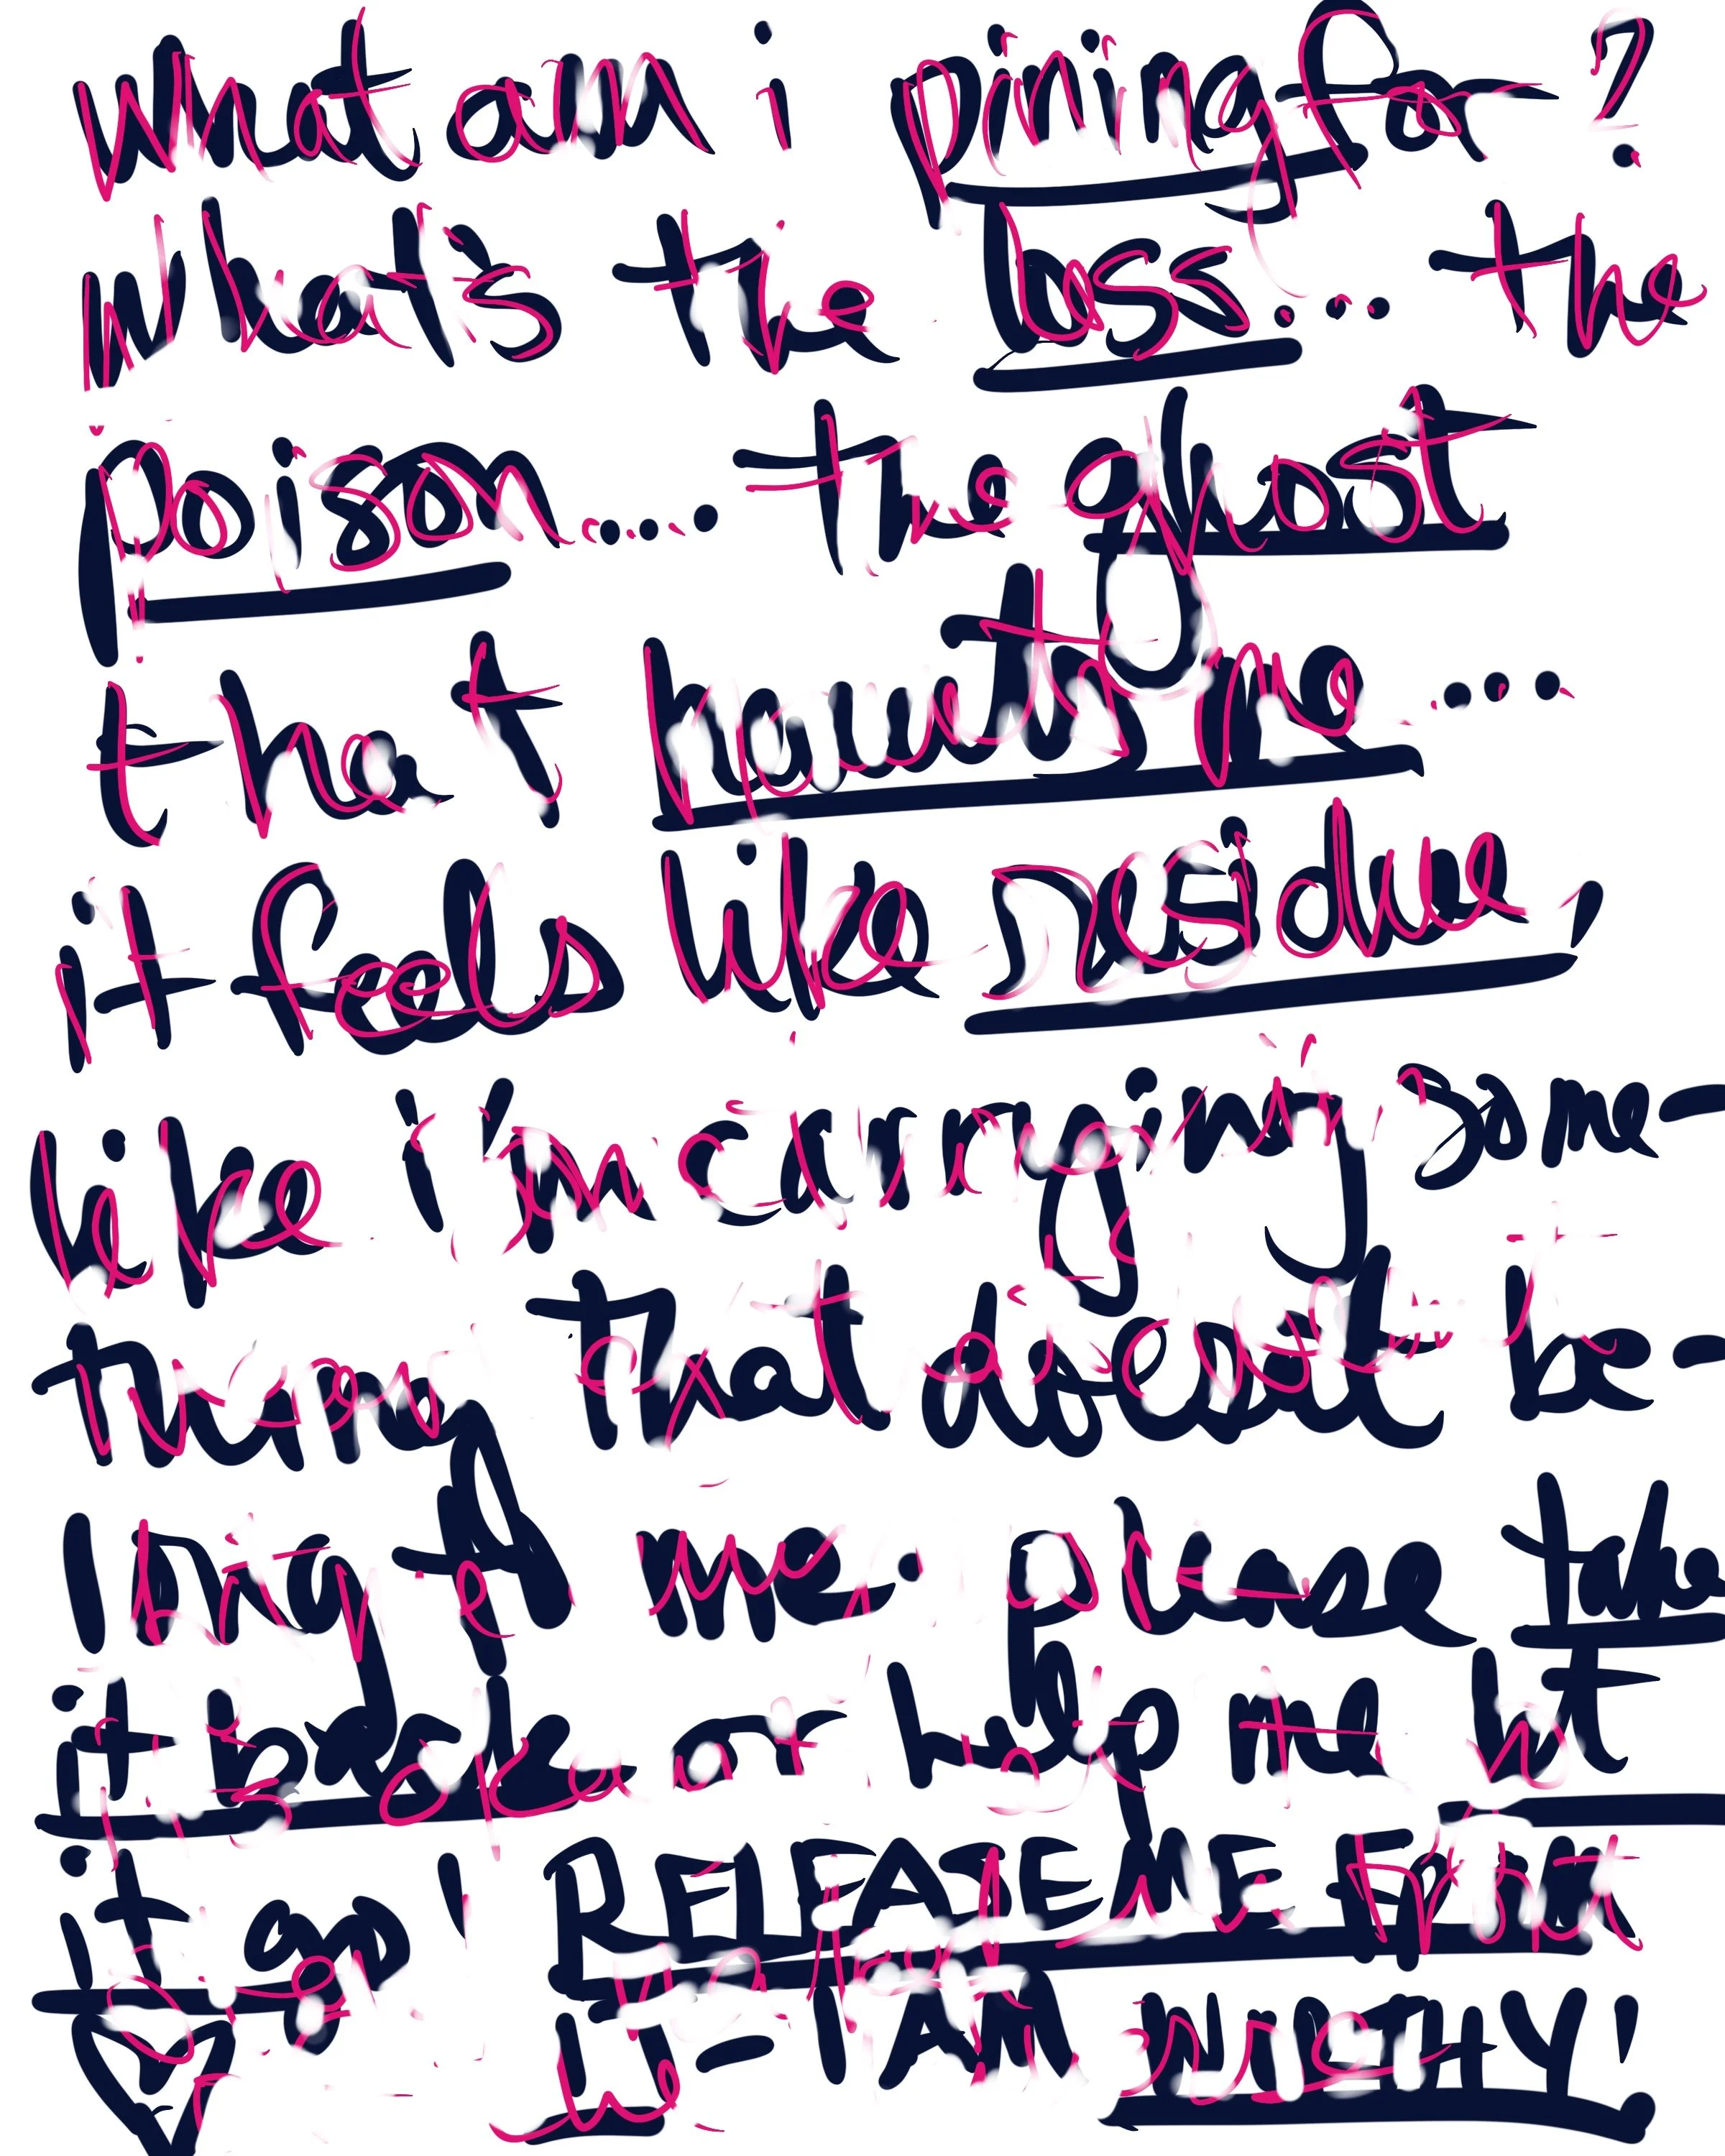 What am i pining for?
What's the loss.... the
poison..... the ghost
that haunts me ....
it feels like residue,
like i'm carrying some-
thing that doesn't be-
long to me. please take
it back or help me let
it go! RELEASE ME FROM
IT - I AM WORTHY!